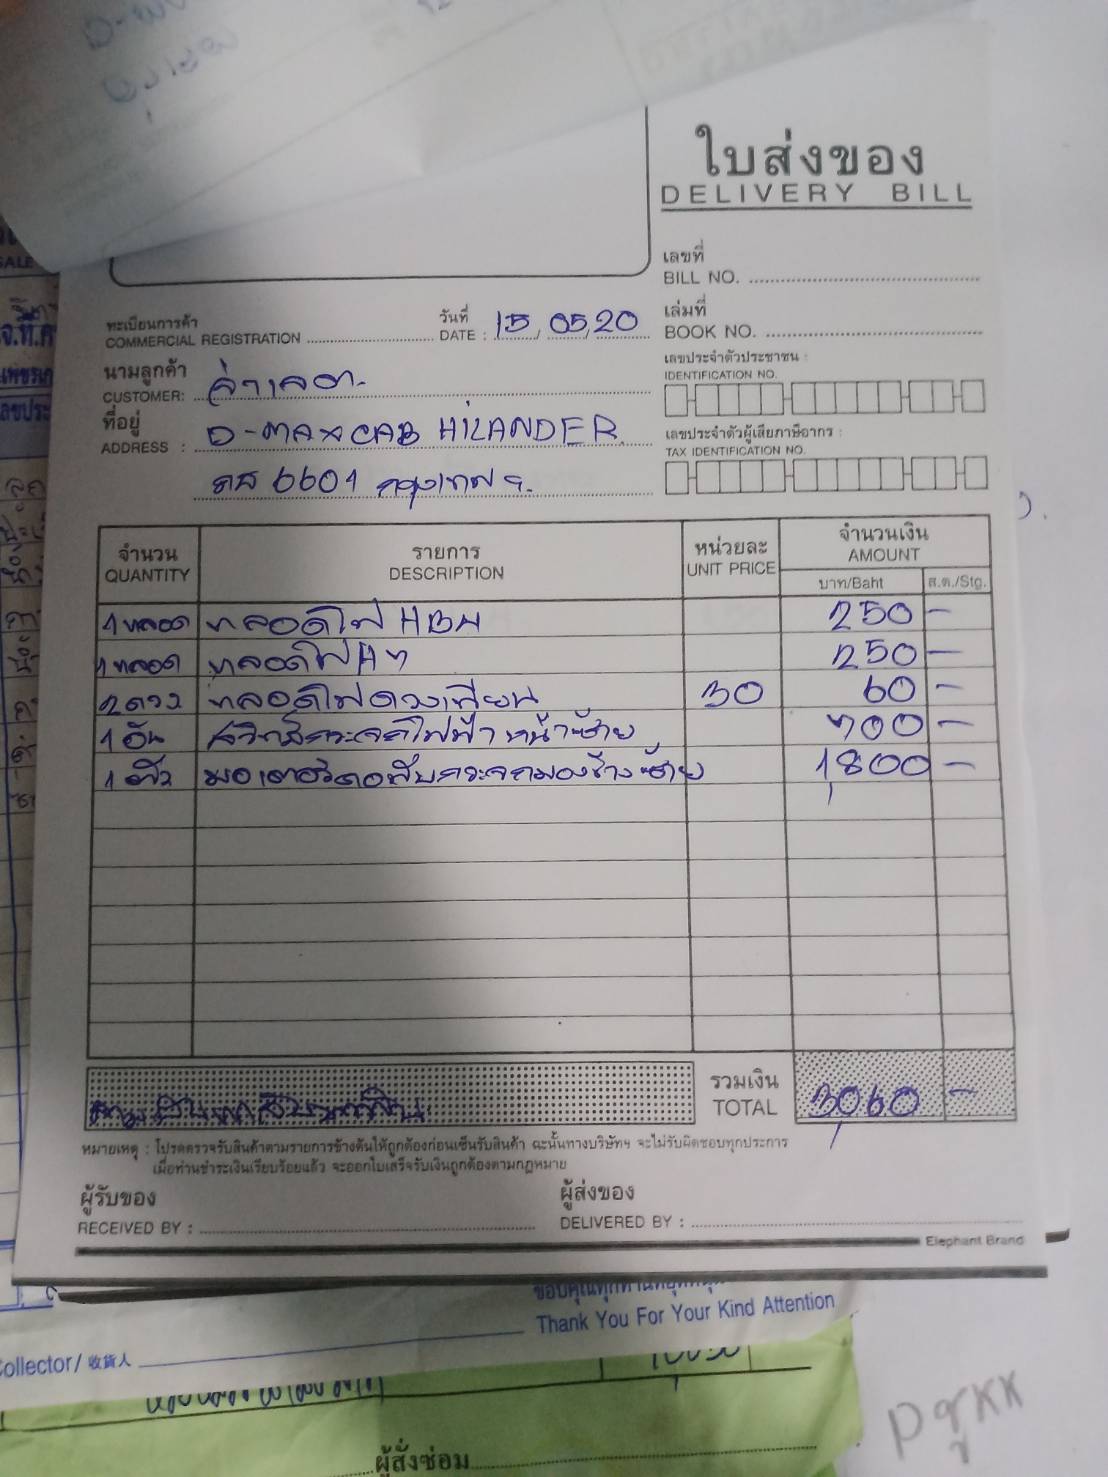 ใบส่งของ
DELIVERY BILL
เลขที่
BILL NO.
ทะเบียนการค้า
COMMERCIAL REGISTRATION
วันที่
DATE : 15/05/20
เล่มที่
BOOK NO.
นามลูกค้า
CUSTOMER: จ่าเลต.
เลขประจำตัวประชาชน :
IDENTIFICATION NO.
ที่อยู่
ADDRESS : D-MAX CAB HILANDER
6601 กรุงเทพฯ.
เลขประจำตัวผู้เสียภาษีอากร :
TAX IDENTIFICATION NO.
จำนวน รายการ หน่วยละ จำนวนเงิน
QUANTITY DESCRIPTION UNIT PRICE AMOUNT
บาท/Baht ส.ต./Stg.
1 หลอด หลอดไฟ HB4 250 -
1 หลอด หลอดไฟ H7 250 -
2 ดวง หลอดไฟดวงเทียน 30 60 -
1 อัน สวิทส์กระจกไฟฟ้า หน้าซ้าย 700 -
1 ตัว มอเตอร์ดอพับกระจกมองข้าง ซ้าย 1,800 -
รวมเงิน
TOTAL 3,060 -
หมายเหตุ : โปรดตรวจรับสินค้าตามรายการข้างต้นให้ถูกต้องก่อนเซ็นรับสินค้า ฉะนั้นทางบริษัทฯ จะไม่รับผิดชอบทุกประการ
เมื่อท่านชำระเงินเรียบร้อยแล้ว จะออกใบเสร็จรับเงินถูกต้องตามกฎหมาย
ผู้รับของ
RECEIVED BY :
ผู้ส่งของ
DELIVERED BY :
Elephant Brand
Thank You For Your Kind Attention
ollector/ 收貨人
ผู้สั่งซ่อม